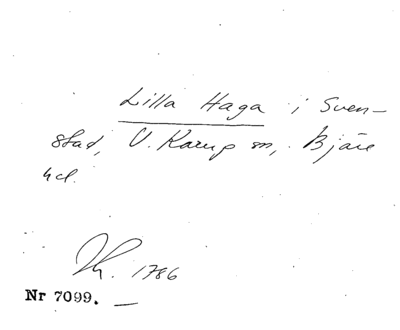 Lilla Haga i Sven-
stad, V. Karup sn, Bjäre
hd.
Jh. 1786
Nr 7099.